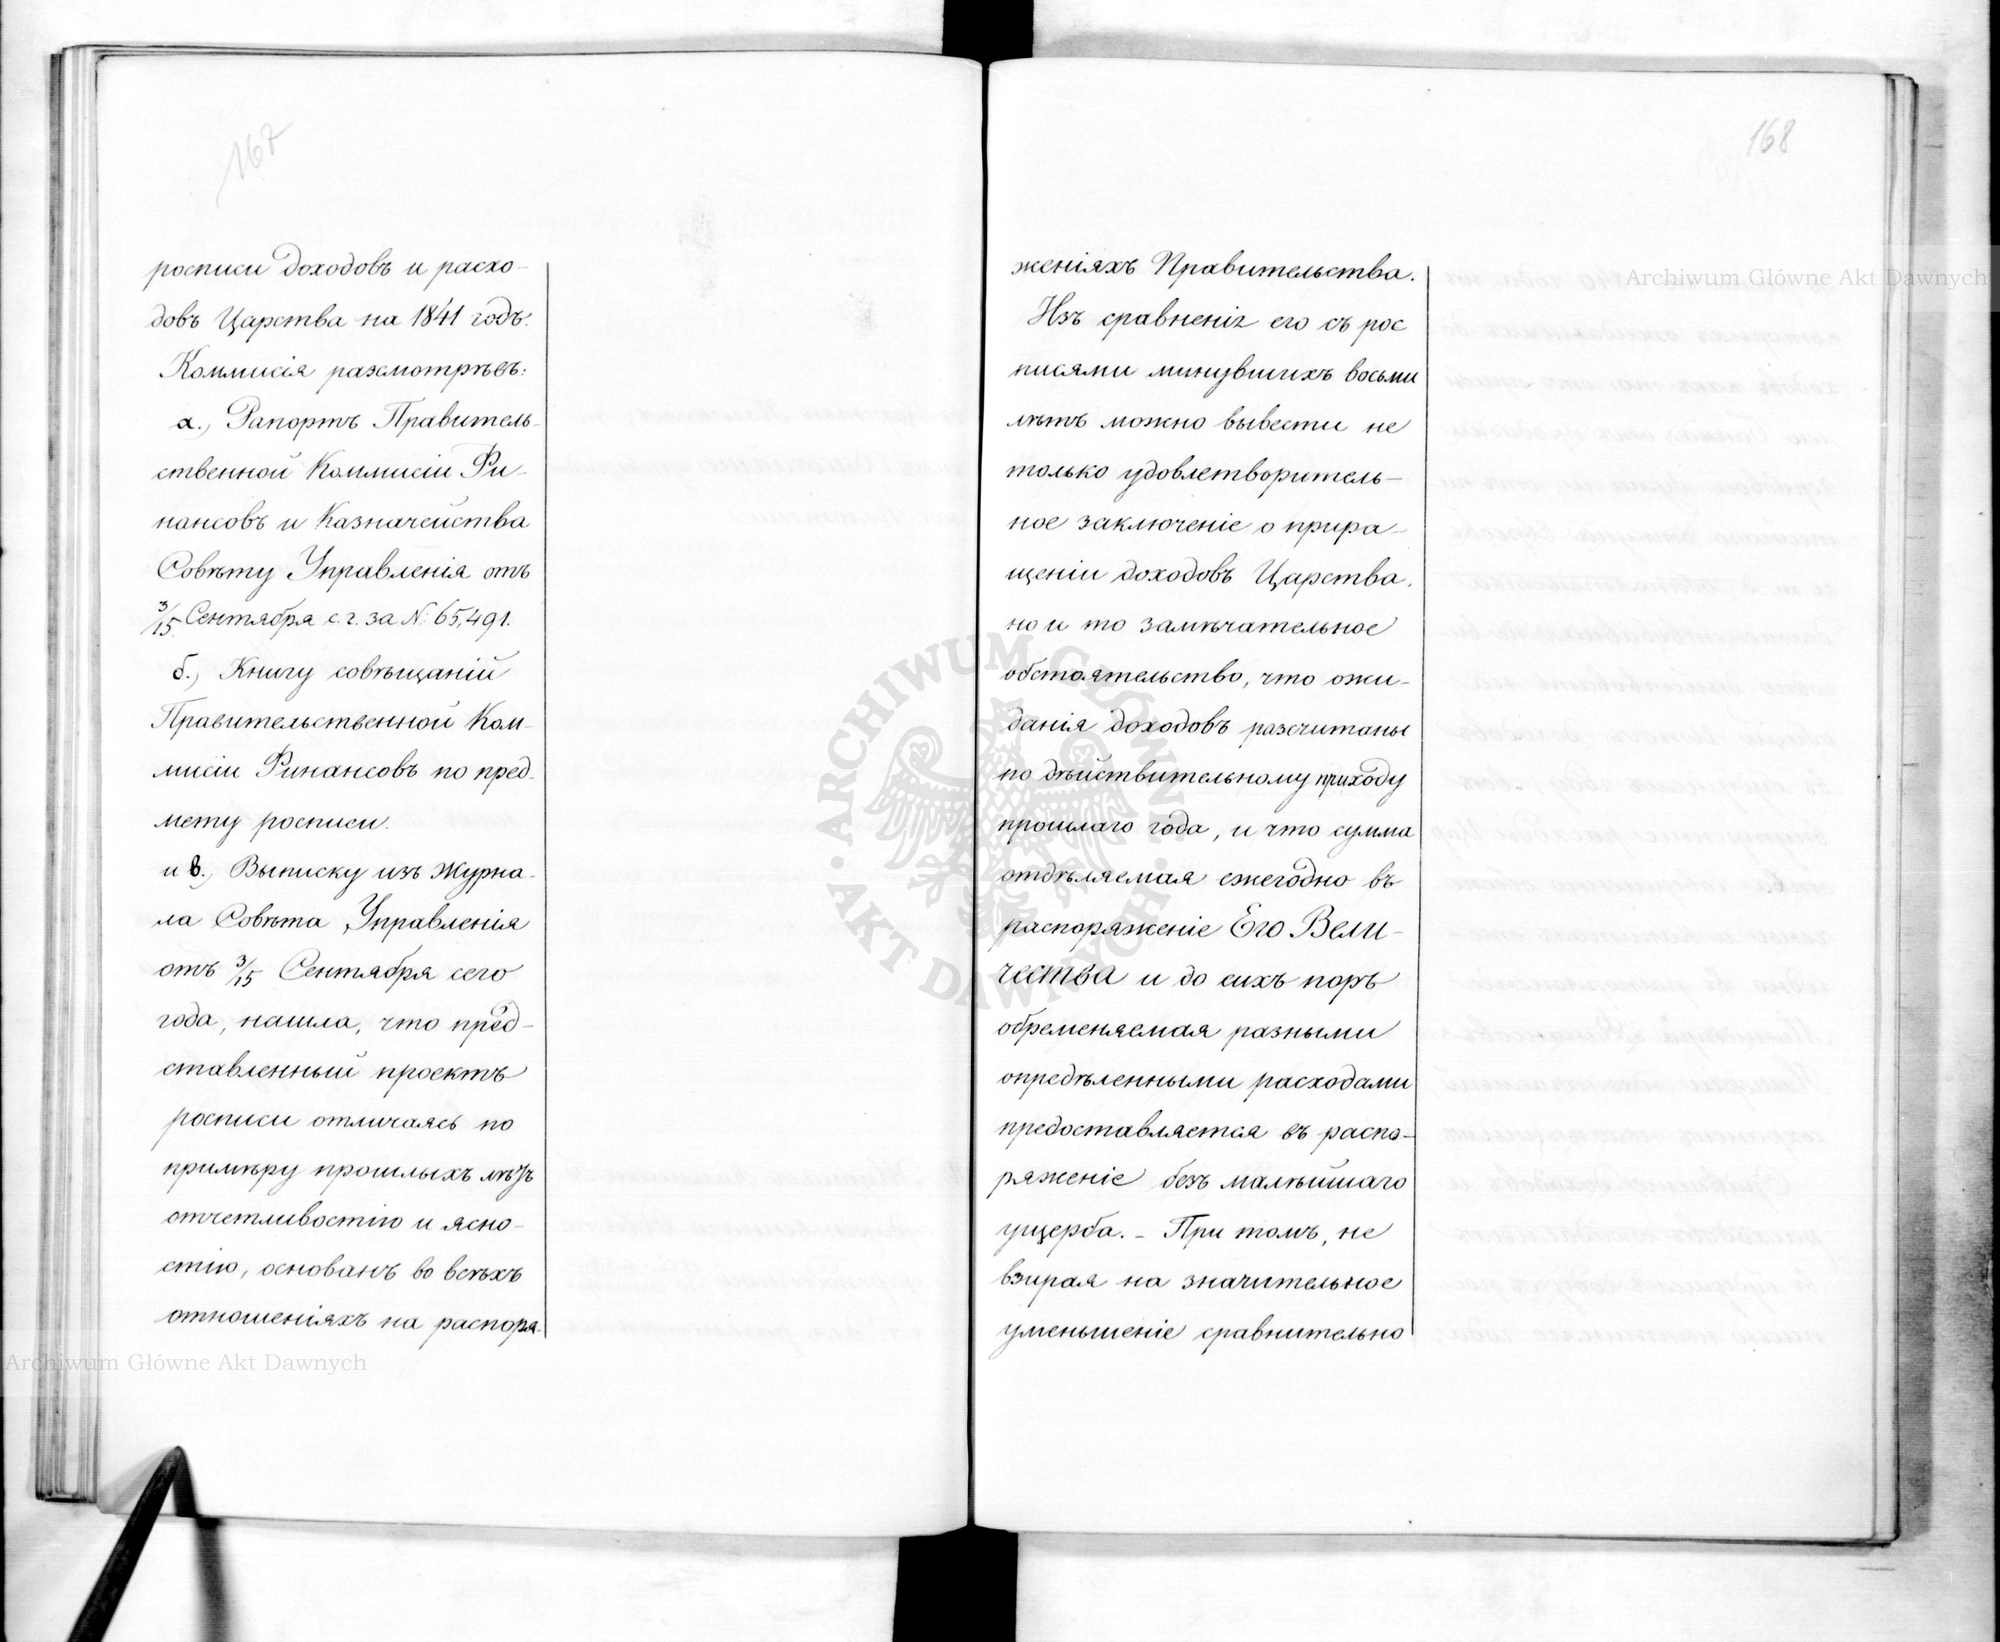 167
росписи доходовъ и расхо-
довъ Царства на 1841 годъ.
Коммисія разсмотрѣвъ:
а., Рапортъ Правитель-
ственной Коммисіи Фи-
нансовъ и Казначейства
Совѣту Управленія отъ
3/15 Сентября с. г. за №: 65,491.
б., Книгу совѣщаній
Правительственной Ком-
мисіи Финансовъ по пред-
мету росписи.
и в., Выписку изъ журна-
ла Совѣта Управленія
отъ 3/15 Сентября сего
года, нашла, что пред-
ставленный проектъ
росписи отличаясь по
примѣру прошлыхъ лѣтъ
отчетливостію и ясно-
стію, основанъ во всѣхъ
отношеніяхъ на распоря-
168
женіяхъ Правительства.
Изъ сравненія его съ рос
писями минувшихъ восьми
лѣтъ можно вывести не
только удовлетворитель-
ное заключеніе о прира-
щеніи доходовъ Царства,
но и то замѣчательное
обстоятельство, что ожи-
данія доходовъ разсчитаны
по дѣйствительному приходу
прошлаго года, и что сумма
отдѣляемая ежегодно въ
распоряженіе Его Вели-
чества и до сихъ поръ
обременяемая разными
опредѣленными расходами
предоставляется въ распо-
ряженіе безъ малѣйшаго
ущерба. - При томъ, не
взирая на значительное
уменьшеніе сравнительно
Archiwum Główne Akt Dawnych
Archiwum Główne Akt Dawnych
ARCHIWUM GŁÓWNE · AKT DAWNYCH ·